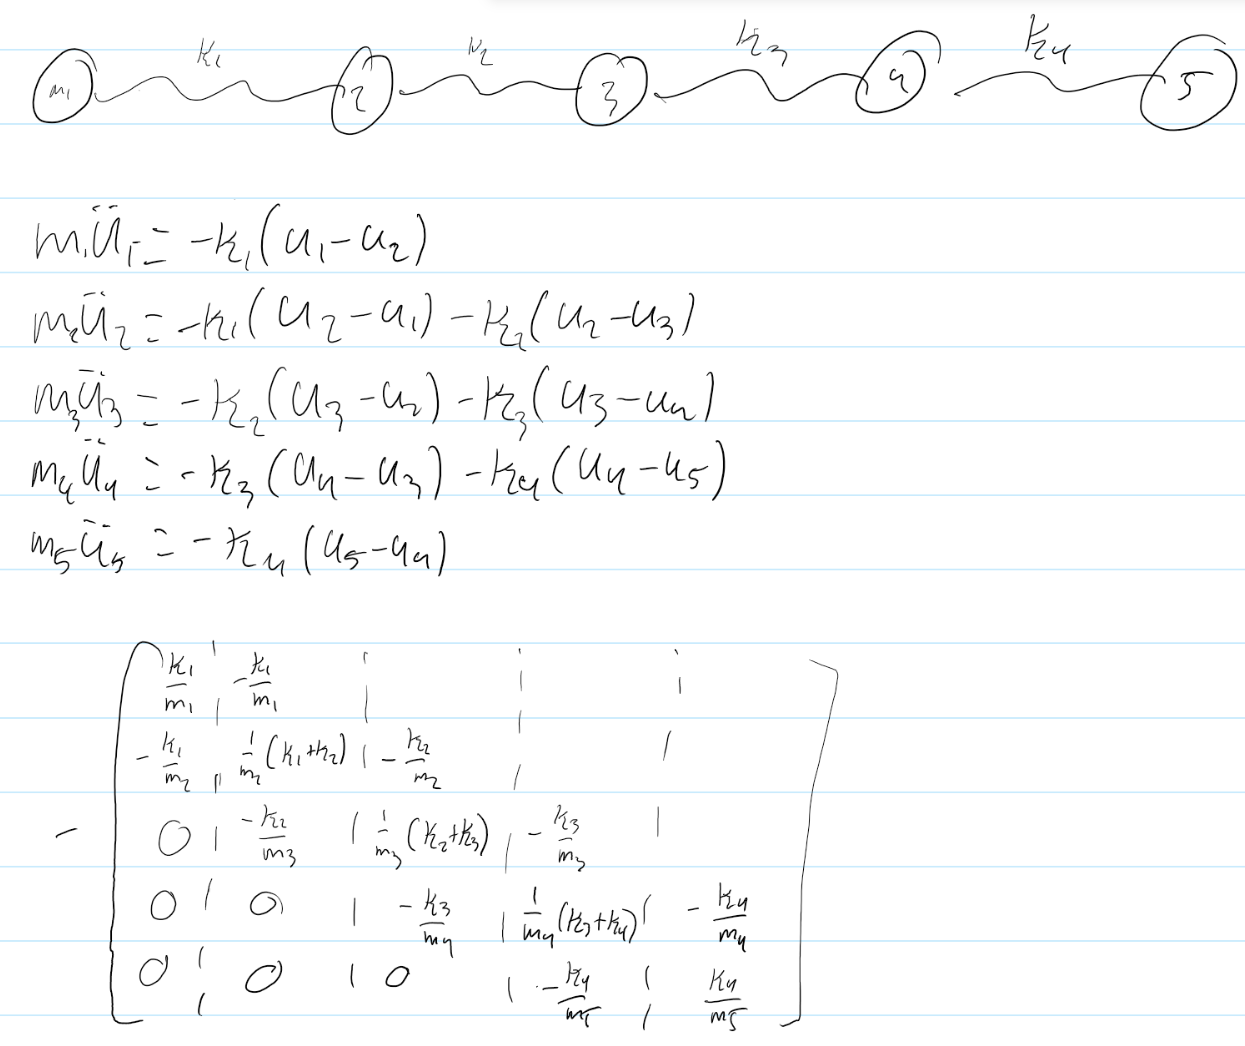 m₁ k₁ 2 k₂ 3 k₃ 4 k₄ 5
m₁ü₁ = -k₁(u₁-u₂)
m₂ü₂ = -k₁(u₂-u₁) -k₂(u₂-u₃)
m₃ü₃ = -k₂(u₃-u₂) -k₃(u₃-u₄)
m₄ü₄ = -k₃(u₄-u₃) -k₄(u₄-u₅)
m₅ü₅ = -k₄(u₅-u₄)
k₁/m₁ | -k₁/m₁ | | |
-k₁/m₂ | 1/m₂(k₁+k₂) | -k₂/m₂ | |
- 0 | -k₂/m₃ | 1/m₃(k₂+k₃) | -k₃/m₃ |
0 | 0 | -k₃/m₄ | 1/m₄(k₃+k₄) | -k₄/m₄
0 | 0 | 0 | -k₄/m₅ | k₄/m₅